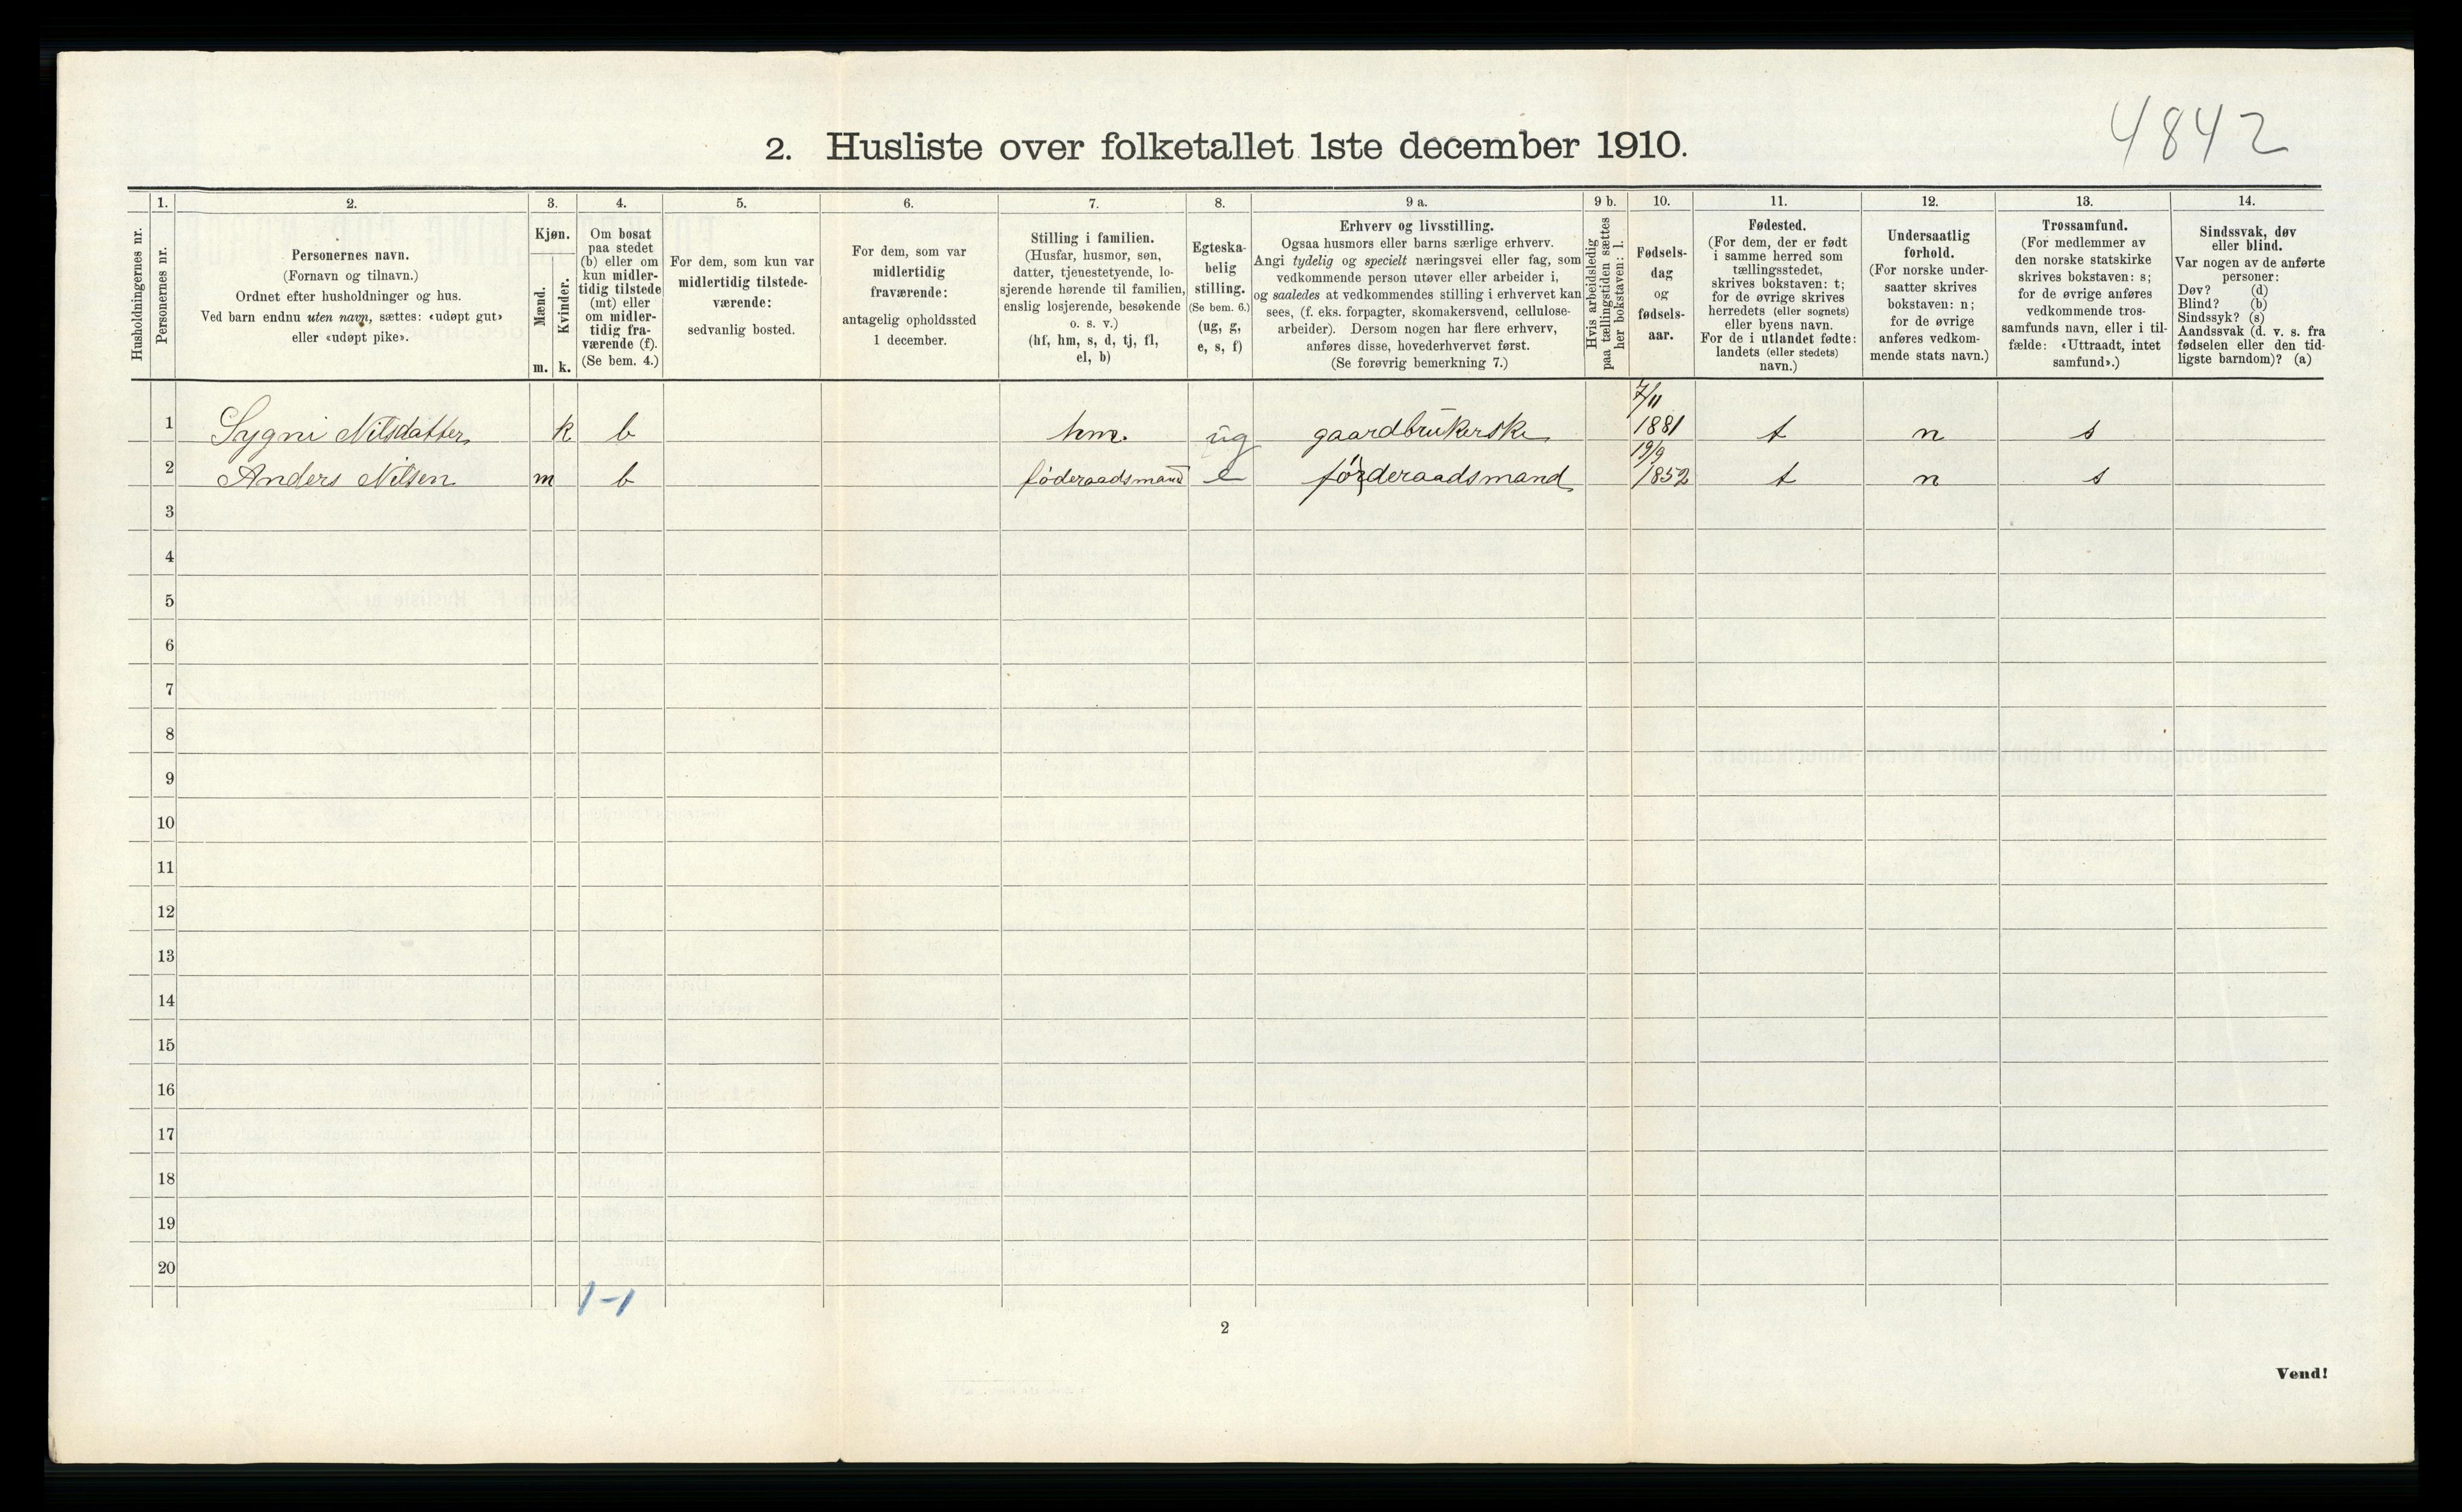 4842
2. Husliste over folketallet 1ste december 1910.
Husholdningernes nr.
1.
Personernes nr.
2.
Personernes navn.
(Fornavn og tilnavn.)
Ordnet efter husholdninger og hus.
Ved barn endnu uten navn, sættes: «udøpt gut»
eller «udøpt pike».
3.
Kjøn.
Mænd.
Kvinder.
m. k.
4.
Om bosat
paa stedet
(b) eller om
kun midler-
tidig tilstede
(mt) eller
om midler-
tidig fra-
værende (f).
(Se bem. 4.)
5.
For dem, som kun var
midlertidig tilstede-
værende:
sedvanlig bosted.
6.
For dem, som var
midlertidig
fraværende:
antagelig opholdssted
1 december.
7.
Stilling i familien.
(Husfar, husmor, søn,
datter, tjenestetyende, lo-
sjerende hørende til familien,
enslig losjerende, besøkende
o. s. v.)
(hf, hm, s, d, tj, fl,
el, b)
8.
Egteska-
belig
stilling.
(Se bem. 6.)
(ug, g,
e, s, f)
9 a.
Erhverv og livsstilling.
Ogsaa husmors eller barns særlige erhverv.
Angi tydelig og specielt næringsvei eller fag, som
vedkommende person utøver eller arbeider i,
og saaledes at vedkommendes stilling i erhvervet kan
sees, (f. eks. forpagter, skomakersvend, cellulose-
arbeider). Dersom nogen har flere erhverv,
anføres disse, hovederhvervet først.
(Se forøvrig bemerkning 7.)
9 b.
Hvis arbeidsledig
paa tællingstiden sættes
her bokstaven: l.
10.
Fødsels-
dag
og
fødsels-
aar.
11.
Fødested.
(For dem, der er født
i samme herred som
tællingsstedet,
skrives bokstaven: t;
for de øvrige skrives
herredets (eller sognets)
eller byens navn.
For de i utlandet fødte:
landets (eller stedets)
navn.)
12.
Undersaatlig
forhold.
(For norske under-
saatter skrives
bokstaven: n;
for de øvrige
anføres vedkom-
mende stats navn.)
13.
Trossamfund.
(For medlemmer av
den norske statskirke
skrives bokstaven: s;
for de øvrige anføres
vedkommende tros-
samfunds navn, eller i til-
fælde: «Uttraadt, intet
samfund».)
14.
Sindssvak, døv
eller blind.
Var nogen av de anførte
personer:
Døv? (d)
Blind? (b)
Sindssyk? (s)
Aandssvak (d. v. s. fra
fødselen eller den tid-
ligste barndom)? (a)
7/11
1 Sygni Nilsdatter k b hm. ug gaardbrukerske 1881 t n s
19/9
2 Anders Nilsen m b føderaadsmand e føderaadsmand 1852 t n s
3
4
5
6
7
8
9
10
11
12
13
14
15
16
17
18
19
20
1-1
2
Vend!